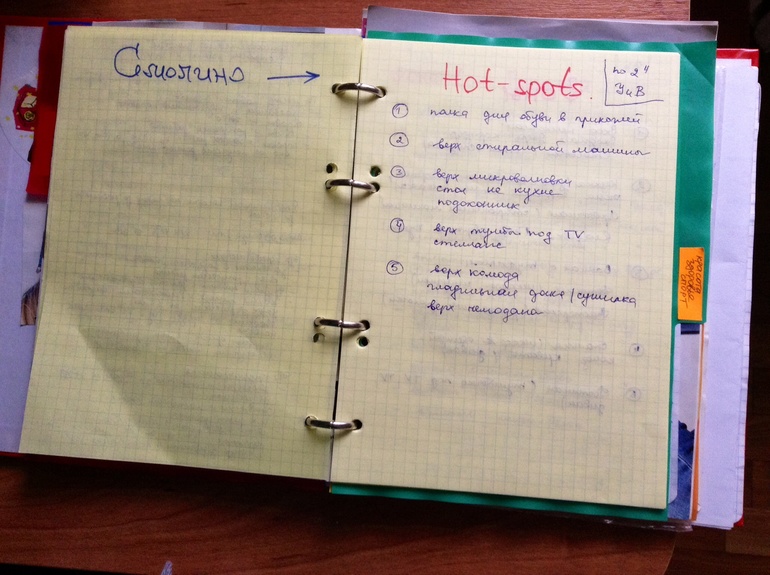 Смолино →
Hot-spots.
по 2 ч
У и В
① полка для обуви в прихожей
② верх стиральной машины
③ верх микроволновки
стол на кухне
подоконник
④ верх тумбы под TV
стеллаж
⑤ верх комода
гладильная доска/сушилка
верх чемодана
красота
здоровье
спорт